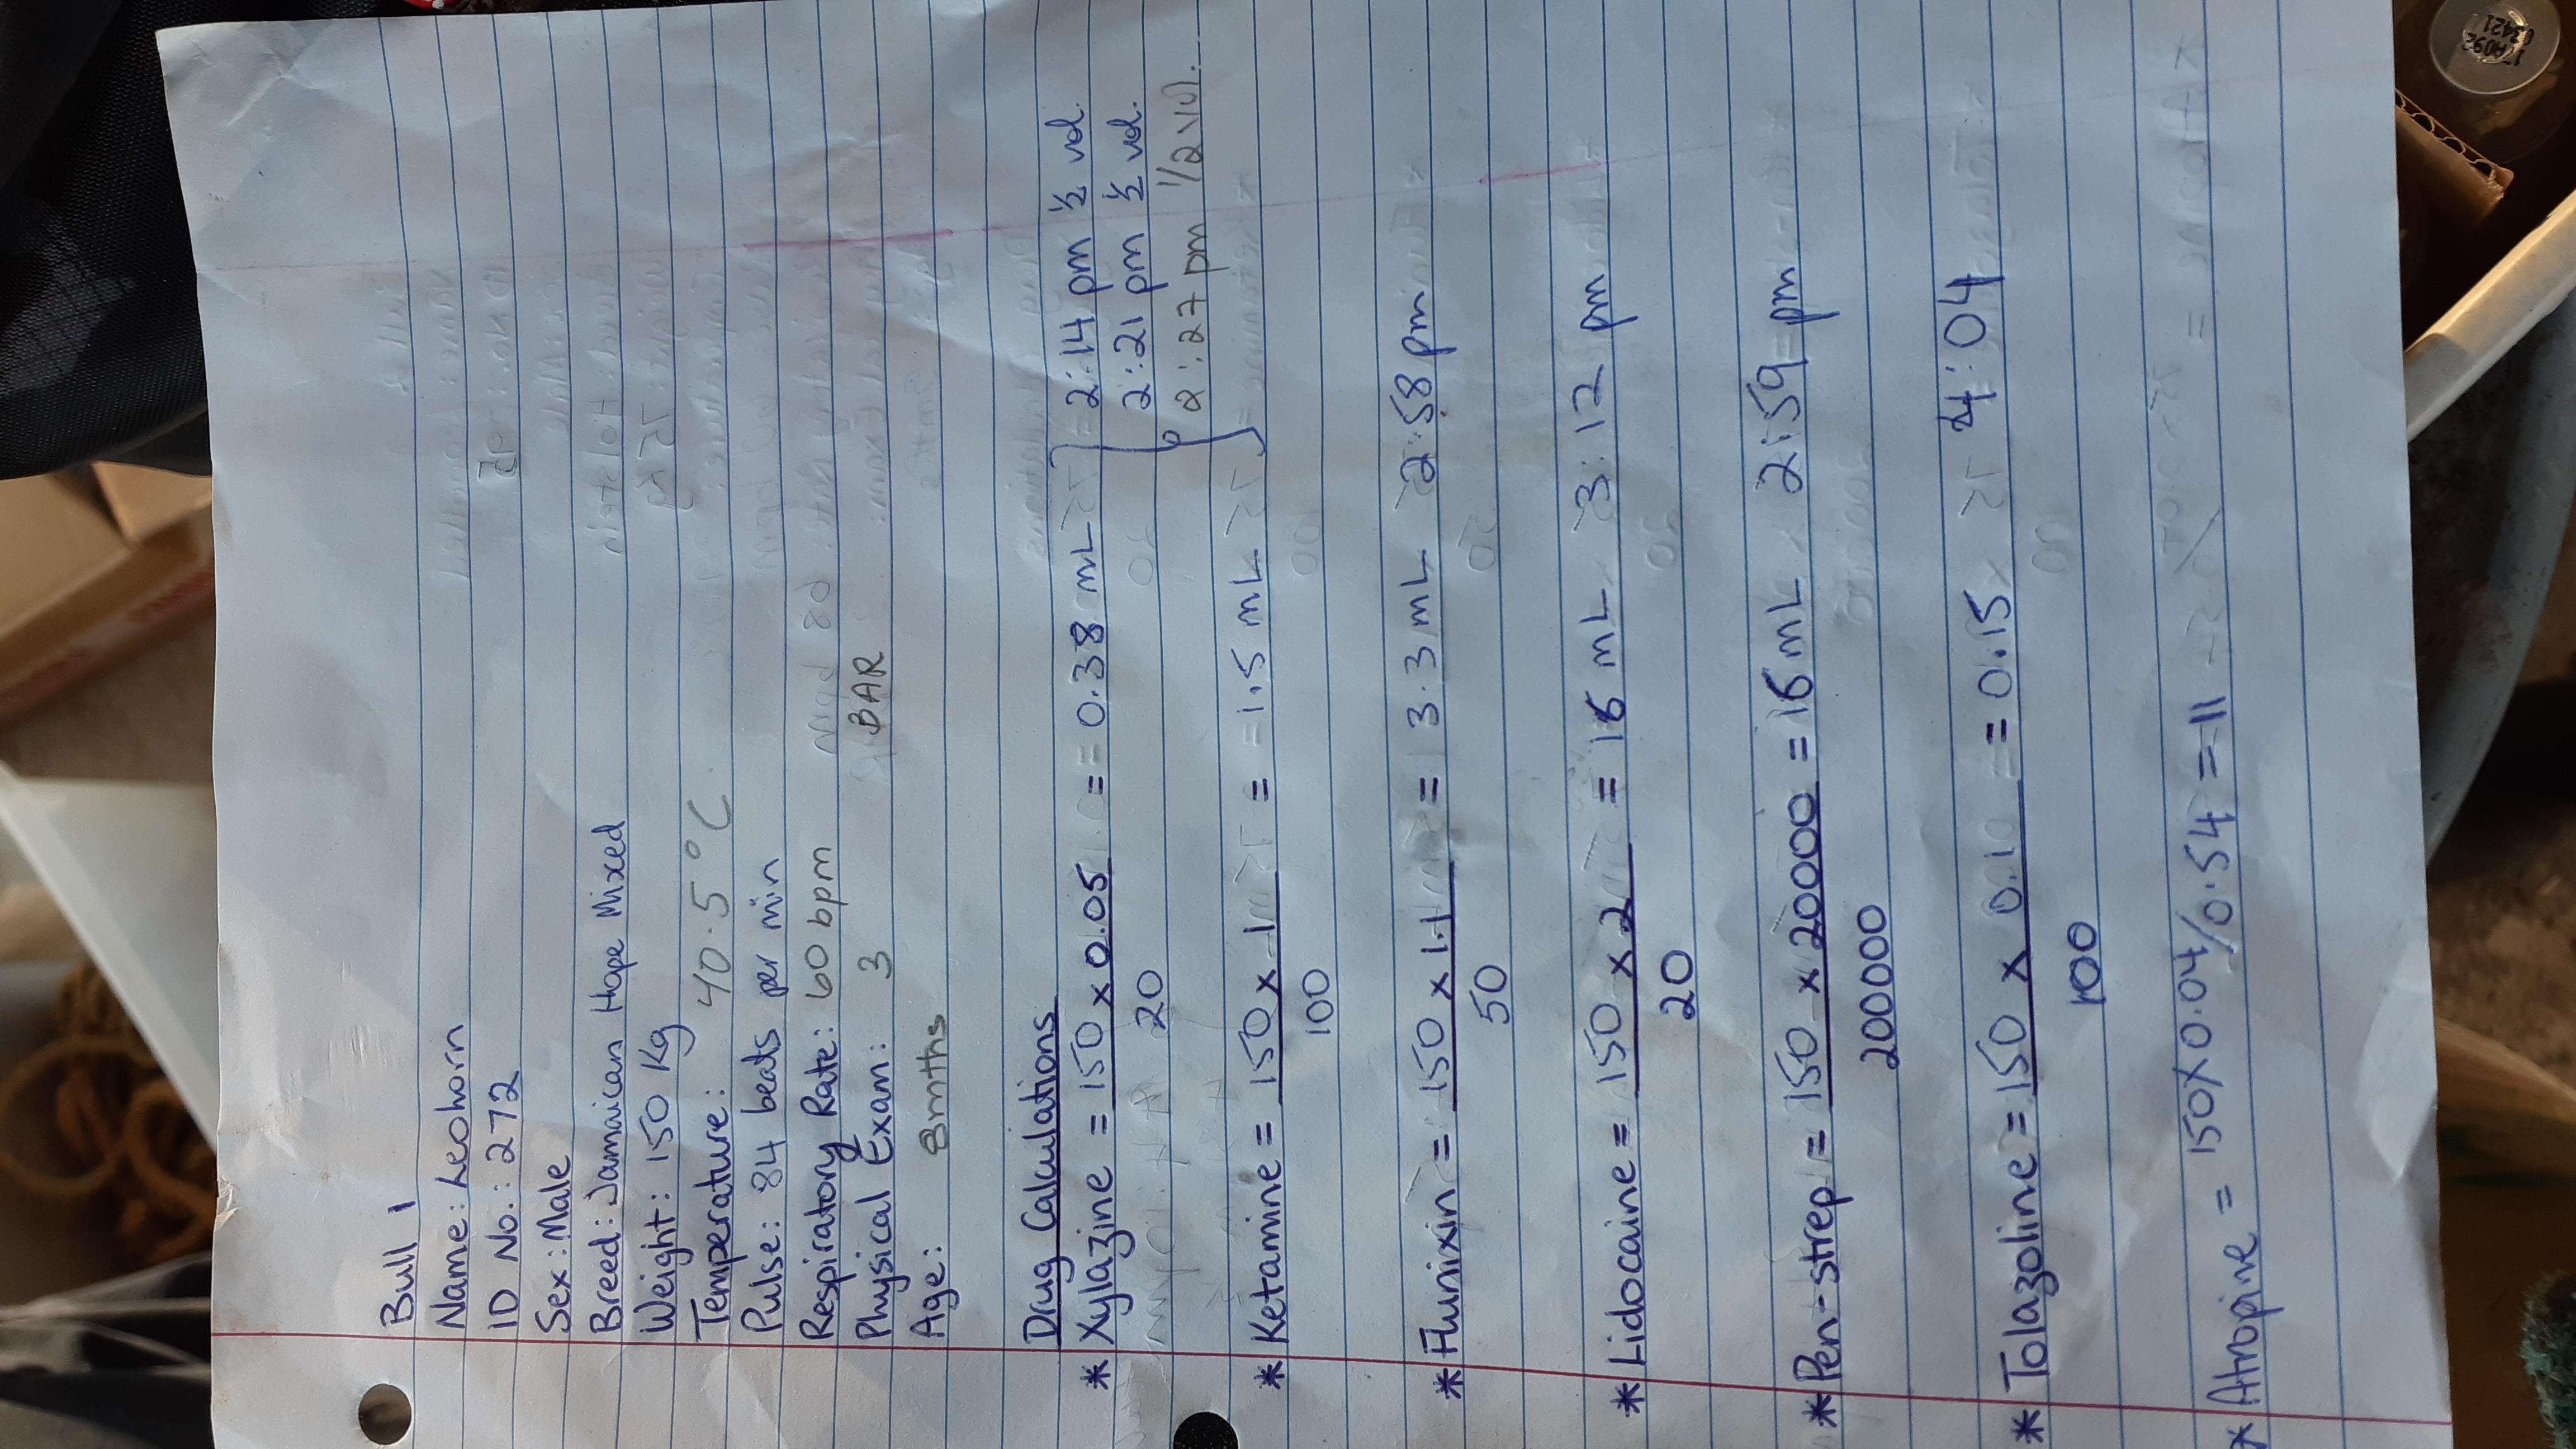 Bull 1
Name: Leohorn
ID No.: 272
Sex: Male
Breed: Jamaican Hope Mixed
Weight: 150 Kg
Temperature: 40.5°C
Pulse: 84 beats per min
Respiratory Rate: 60 bpm
Physical Exam: 3 BAR
Age: 8mths
Drug Calculations
* Xylazine = 150 x 0.05 = 0.38 mL = 2:14 pm ½ vol.
20 2:21 pm ½ vol.
2:27 pm 1/2 vol.
* Ketamine = 150 x 1 = 1.5 mL
100
* Flunixin = 150 x 1.1 = 3.3 mL 2:58 pm
50
* Lidocaine = 150 x 2 = 16 mL 3:12 pm
20
* Pen-strep = 150 x 20000 = 16 mL 2:59 pm
200000
* Tolazoline = 150 x 0.10 = 0.15 4:04
100
* Atropine = 150 x 0.04/0.54 = 11